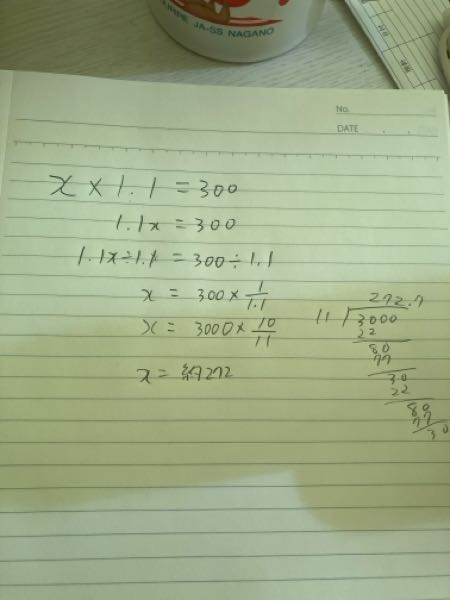 JA-SS NAGANO
No.
DATE . .
x × 1.1 = 300
1.1x = 300
1.1x÷1.1 = 300÷1.1
x = 300 × 1/1.1
x = 3000 × 10/11
x = 約272
272.7
11 3000
22
80
77
30
22
80
77
30